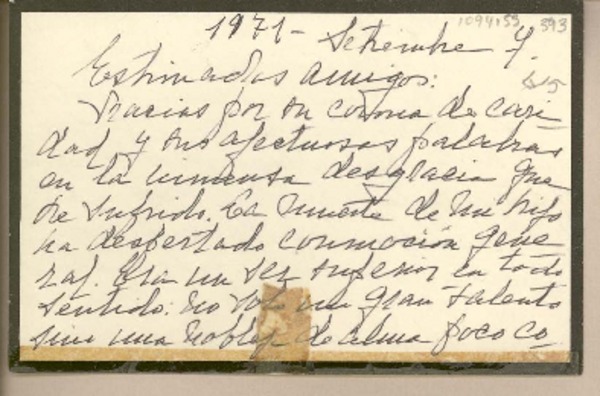 109455 393
1971 - Setiembre 7.
615
Estimados amigos:
Gracias por su corona de cari
dad y sus afectuosas palabras
en la inmensa desgracia que
he sufrido. La muerte de mi hijo
ha despertado conmoción gene
ral. Era un ser superior en todo
sentido: no solo un gran talento
sino una nobleza de alma poco co